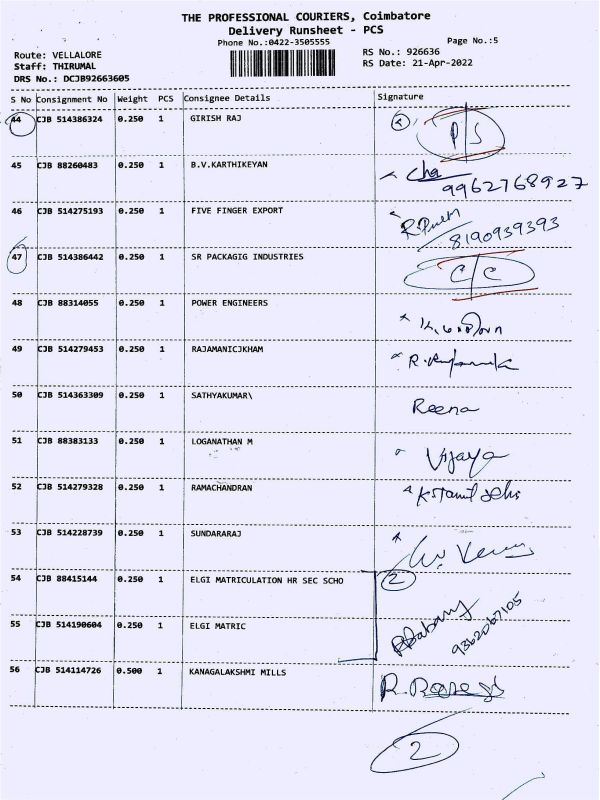 THE PROFESSIONAL COURIERS, Coimbatore
Delivery Runsheet - PCS
Phone No.:0422-3505555
Page No.:5
Route: VELLALORE
RS No.: 926636
Staff: THIRUMAL
RS Date: 21-Apr-2022
DRS No.: DCJB92663605
S No Consignment No Weight PCS Consignee Details Signature
44 CJB 514386324 0.250 1 GIRISH RAJ P/S
45 CJB 88260483 0.250 1 B.V.KARTHIKEYAN Cha
9962768927
46 CJB 514275193 0.250 1 FIVE FINGER EXPORT
8190939393
47 CJB 514386442 0.250 1 SR PACKAGIG INDUSTRIES C/C
48 CJB 88314055 0.250 1 POWER ENGINEERS
49 CJB 514279453 0.250 1 RAJAMANICJKHAM
50 CJB 514363309 0.250 1 SATHYAKUMAR\ Reena
51 CJB 88383133 0.250 1 LOGANATHAN M Vijaya
52 CJB 514279328 0.250 1 RAMACHANDRAN
53 CJB 514228739 0.250 1 SUNDARARAJ
54 CJB 88415144 0.250 1 ELGI MATRICULATION HR SEC SCHO 2
55 CJB 514190604 0.250 1 ELGI MATRIC
9362067105
56 CJB 514114726 0.500 1 KANAGALAKSHMI MILLS
2